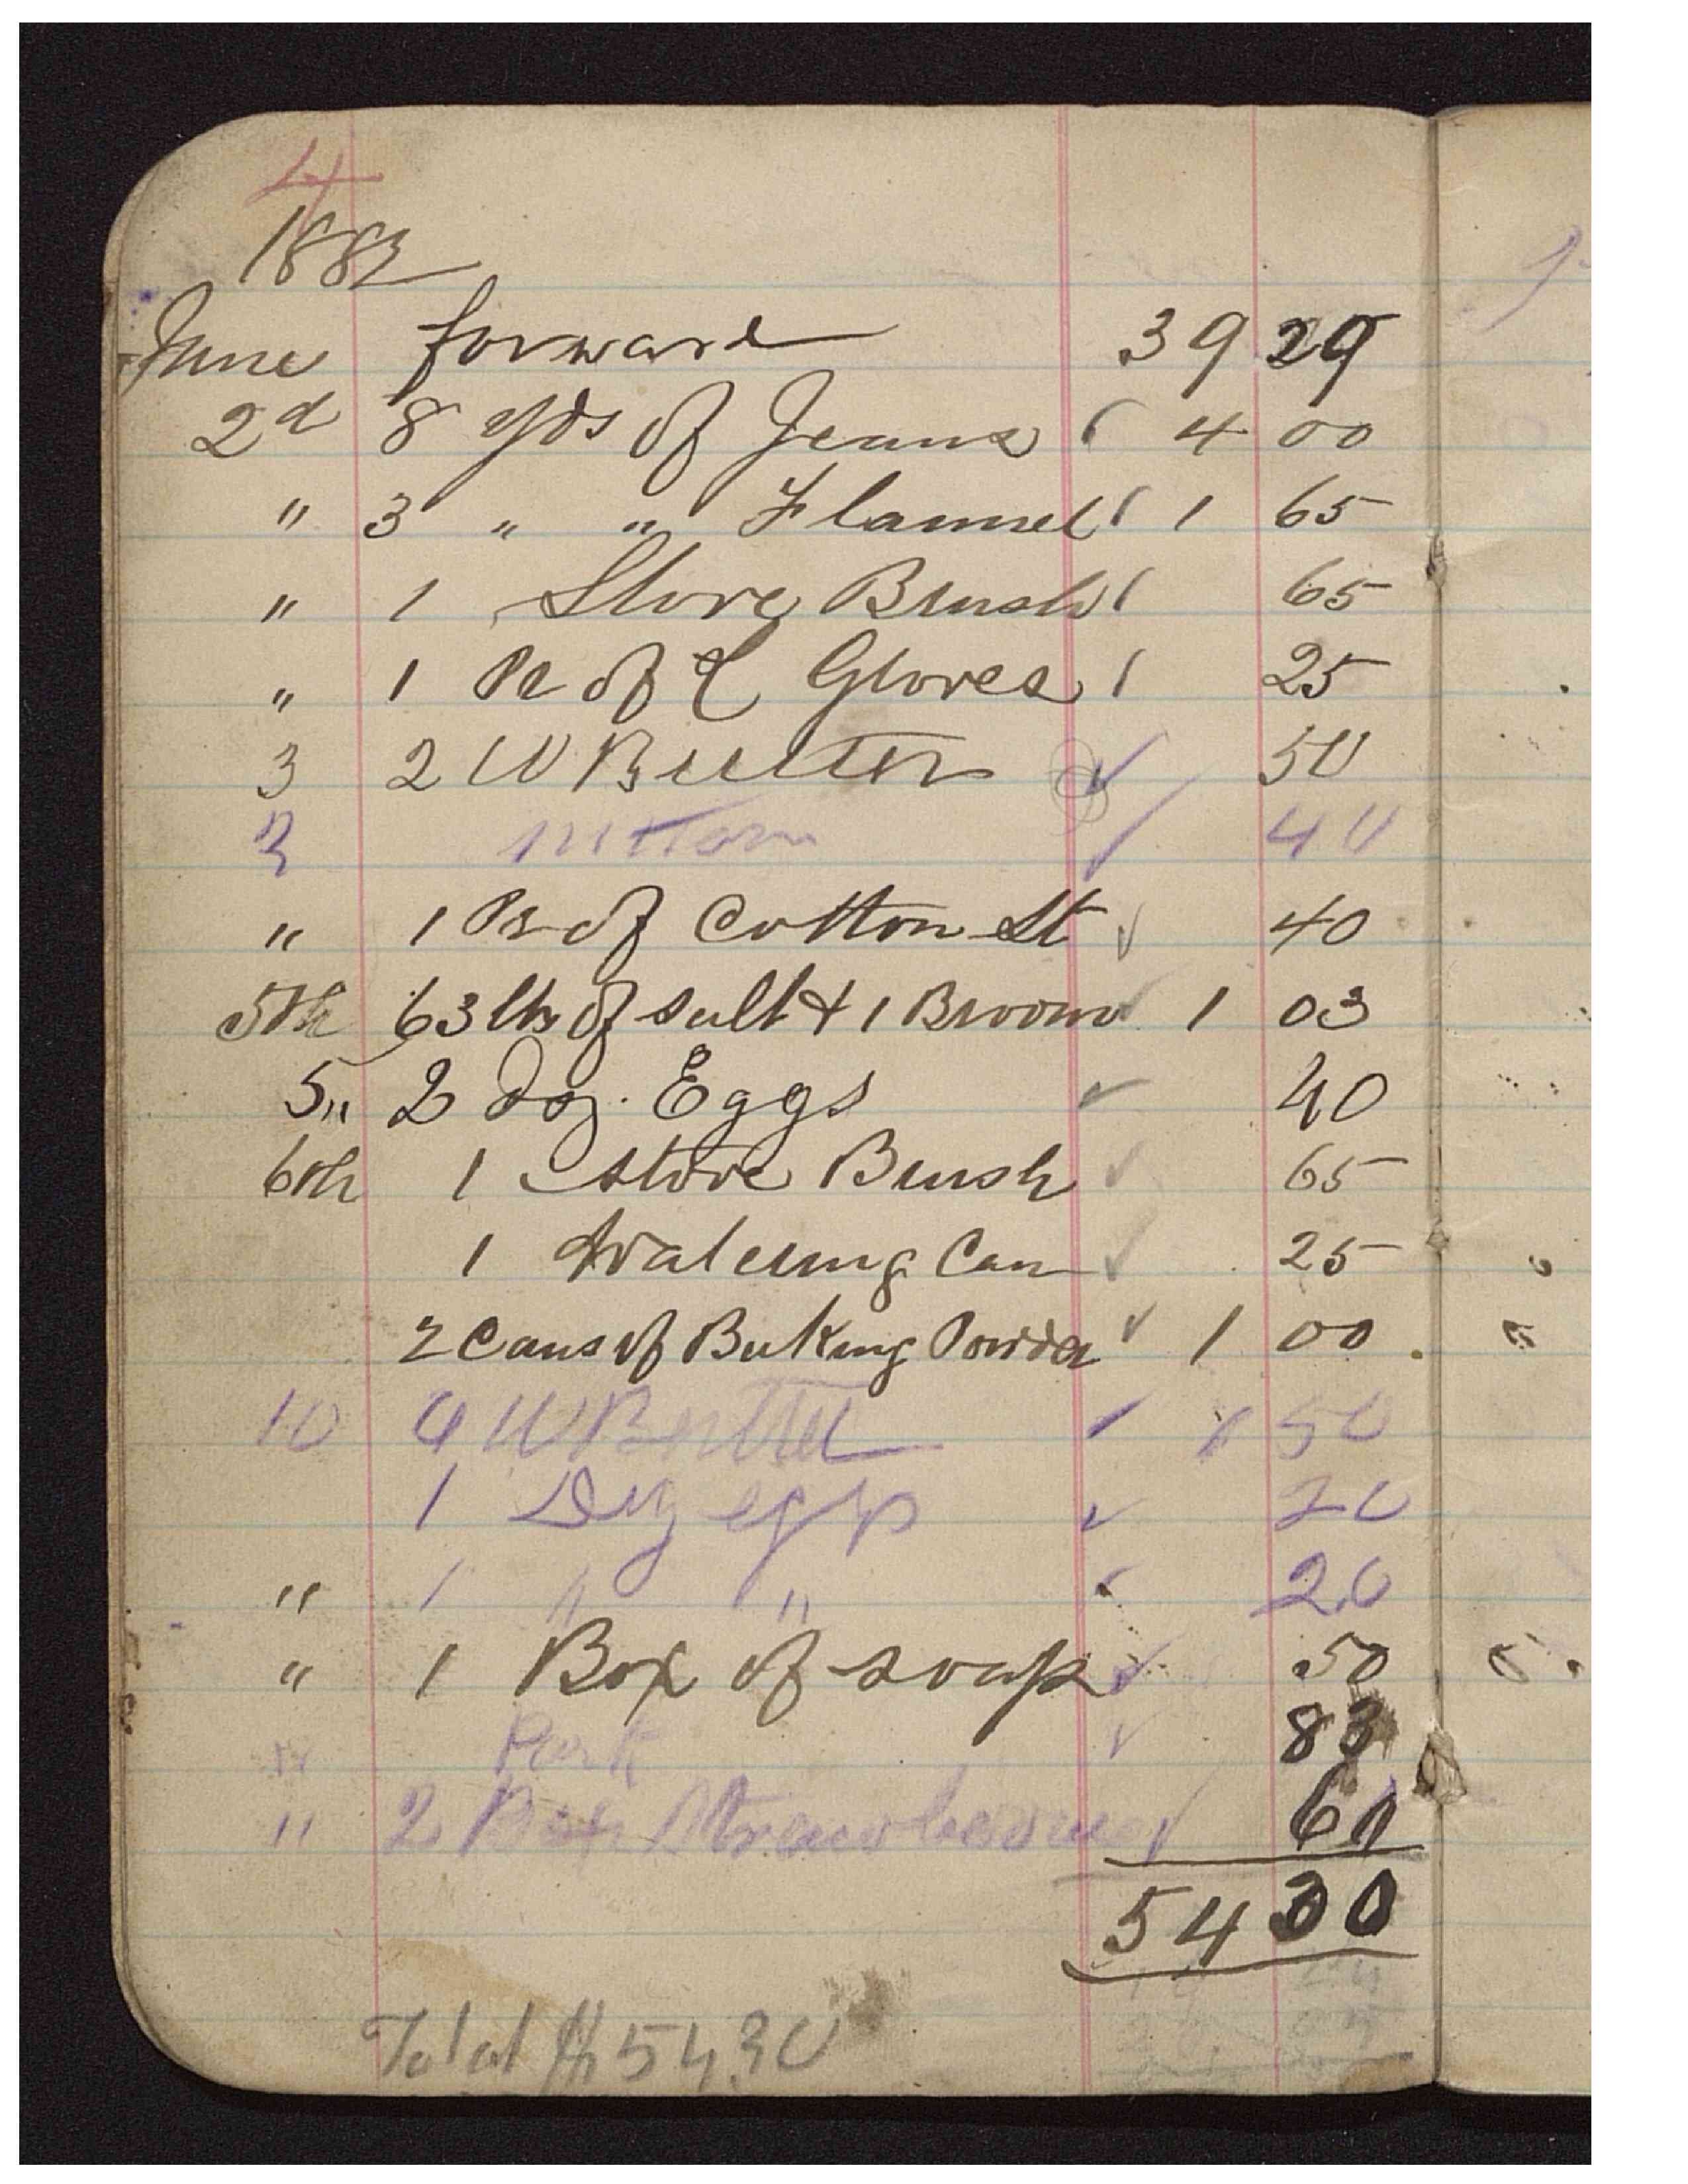 4
1882
June forward 39 29
2d 8 yds of Jeans 4 00
" 3 " " Flannel 1 65
" 1 Stove Brush 65
" 1 Pr of Gloves 25
3 2 lb Butter 50
3 mttom 40
" 1 Pr of Cotton St 40
5th 63 lbs of salt + 1 Broom 1 03
5" 2 Doz. Eggs 40
6th 1 Stove Brush 65
1 Watering Can 25
2 Cans of Baking Powder 1 00
10 6 lb Butter 1 50
1 Doz eggs 20
" 1 " " 20
" 1 Box of soap 50
" Pork 83
" 2 Box Strawberries 60
54 30
Total $54.30